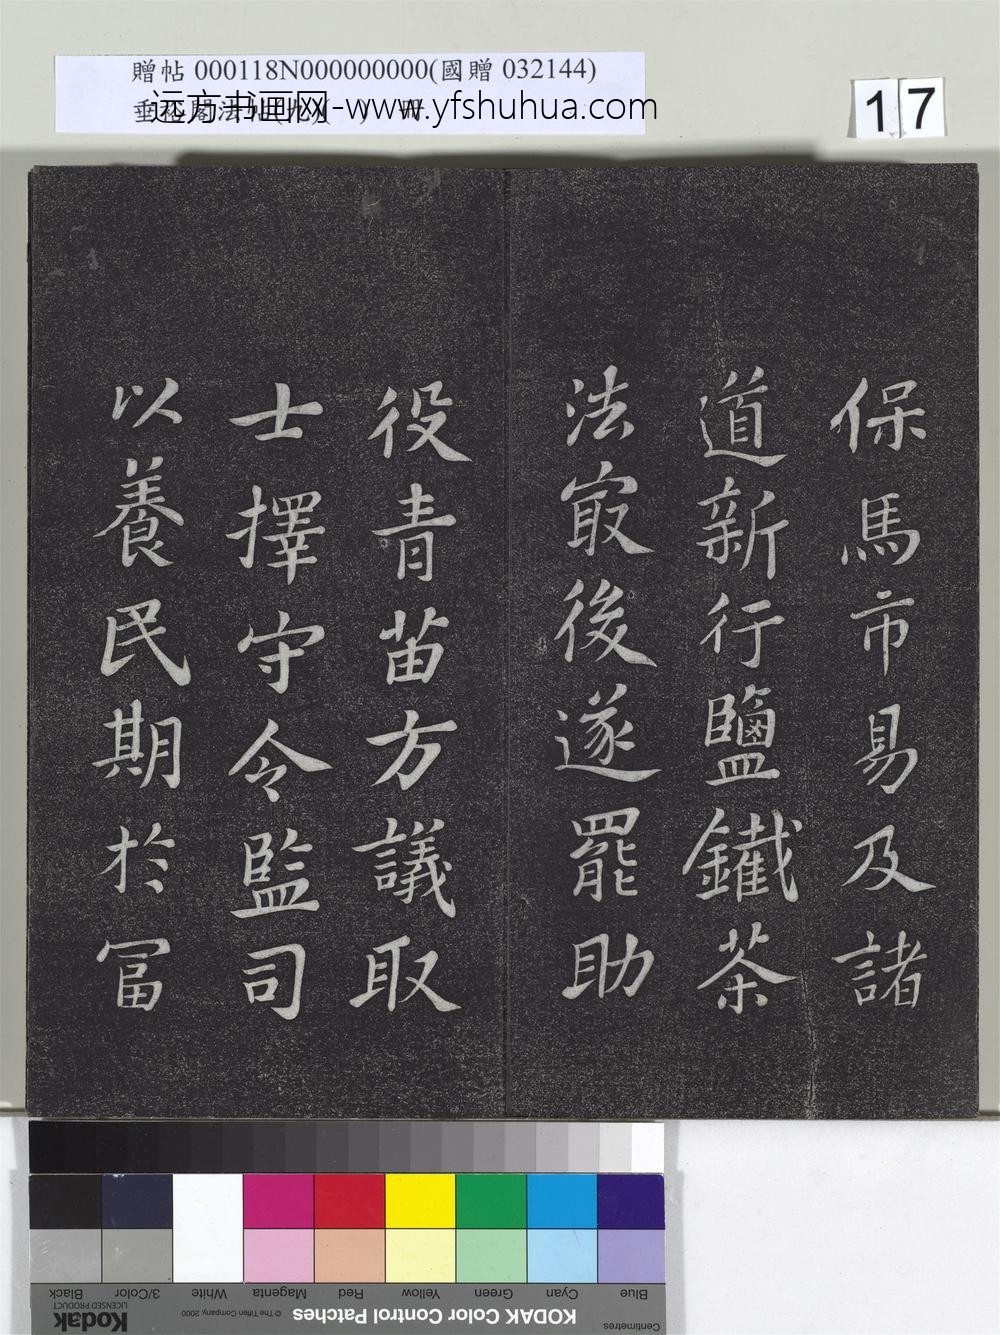 贈帖 000118N000000000(國贈 032144)
远方书画网-www.yfshuhua.com
17
保馬市易及諸
道新行鹽鐵茶
法㝡後遂罷助
役青苗方議取
士擇守令監司
以養民期於冨
Black
3/Color
White
Magenta
Red
Yellow
Green
Cyan
Blue
Kodak
LICENSED PRODUCT
© The Tiffen Company, 2000
KODAK Color Control Patches
Centimetres